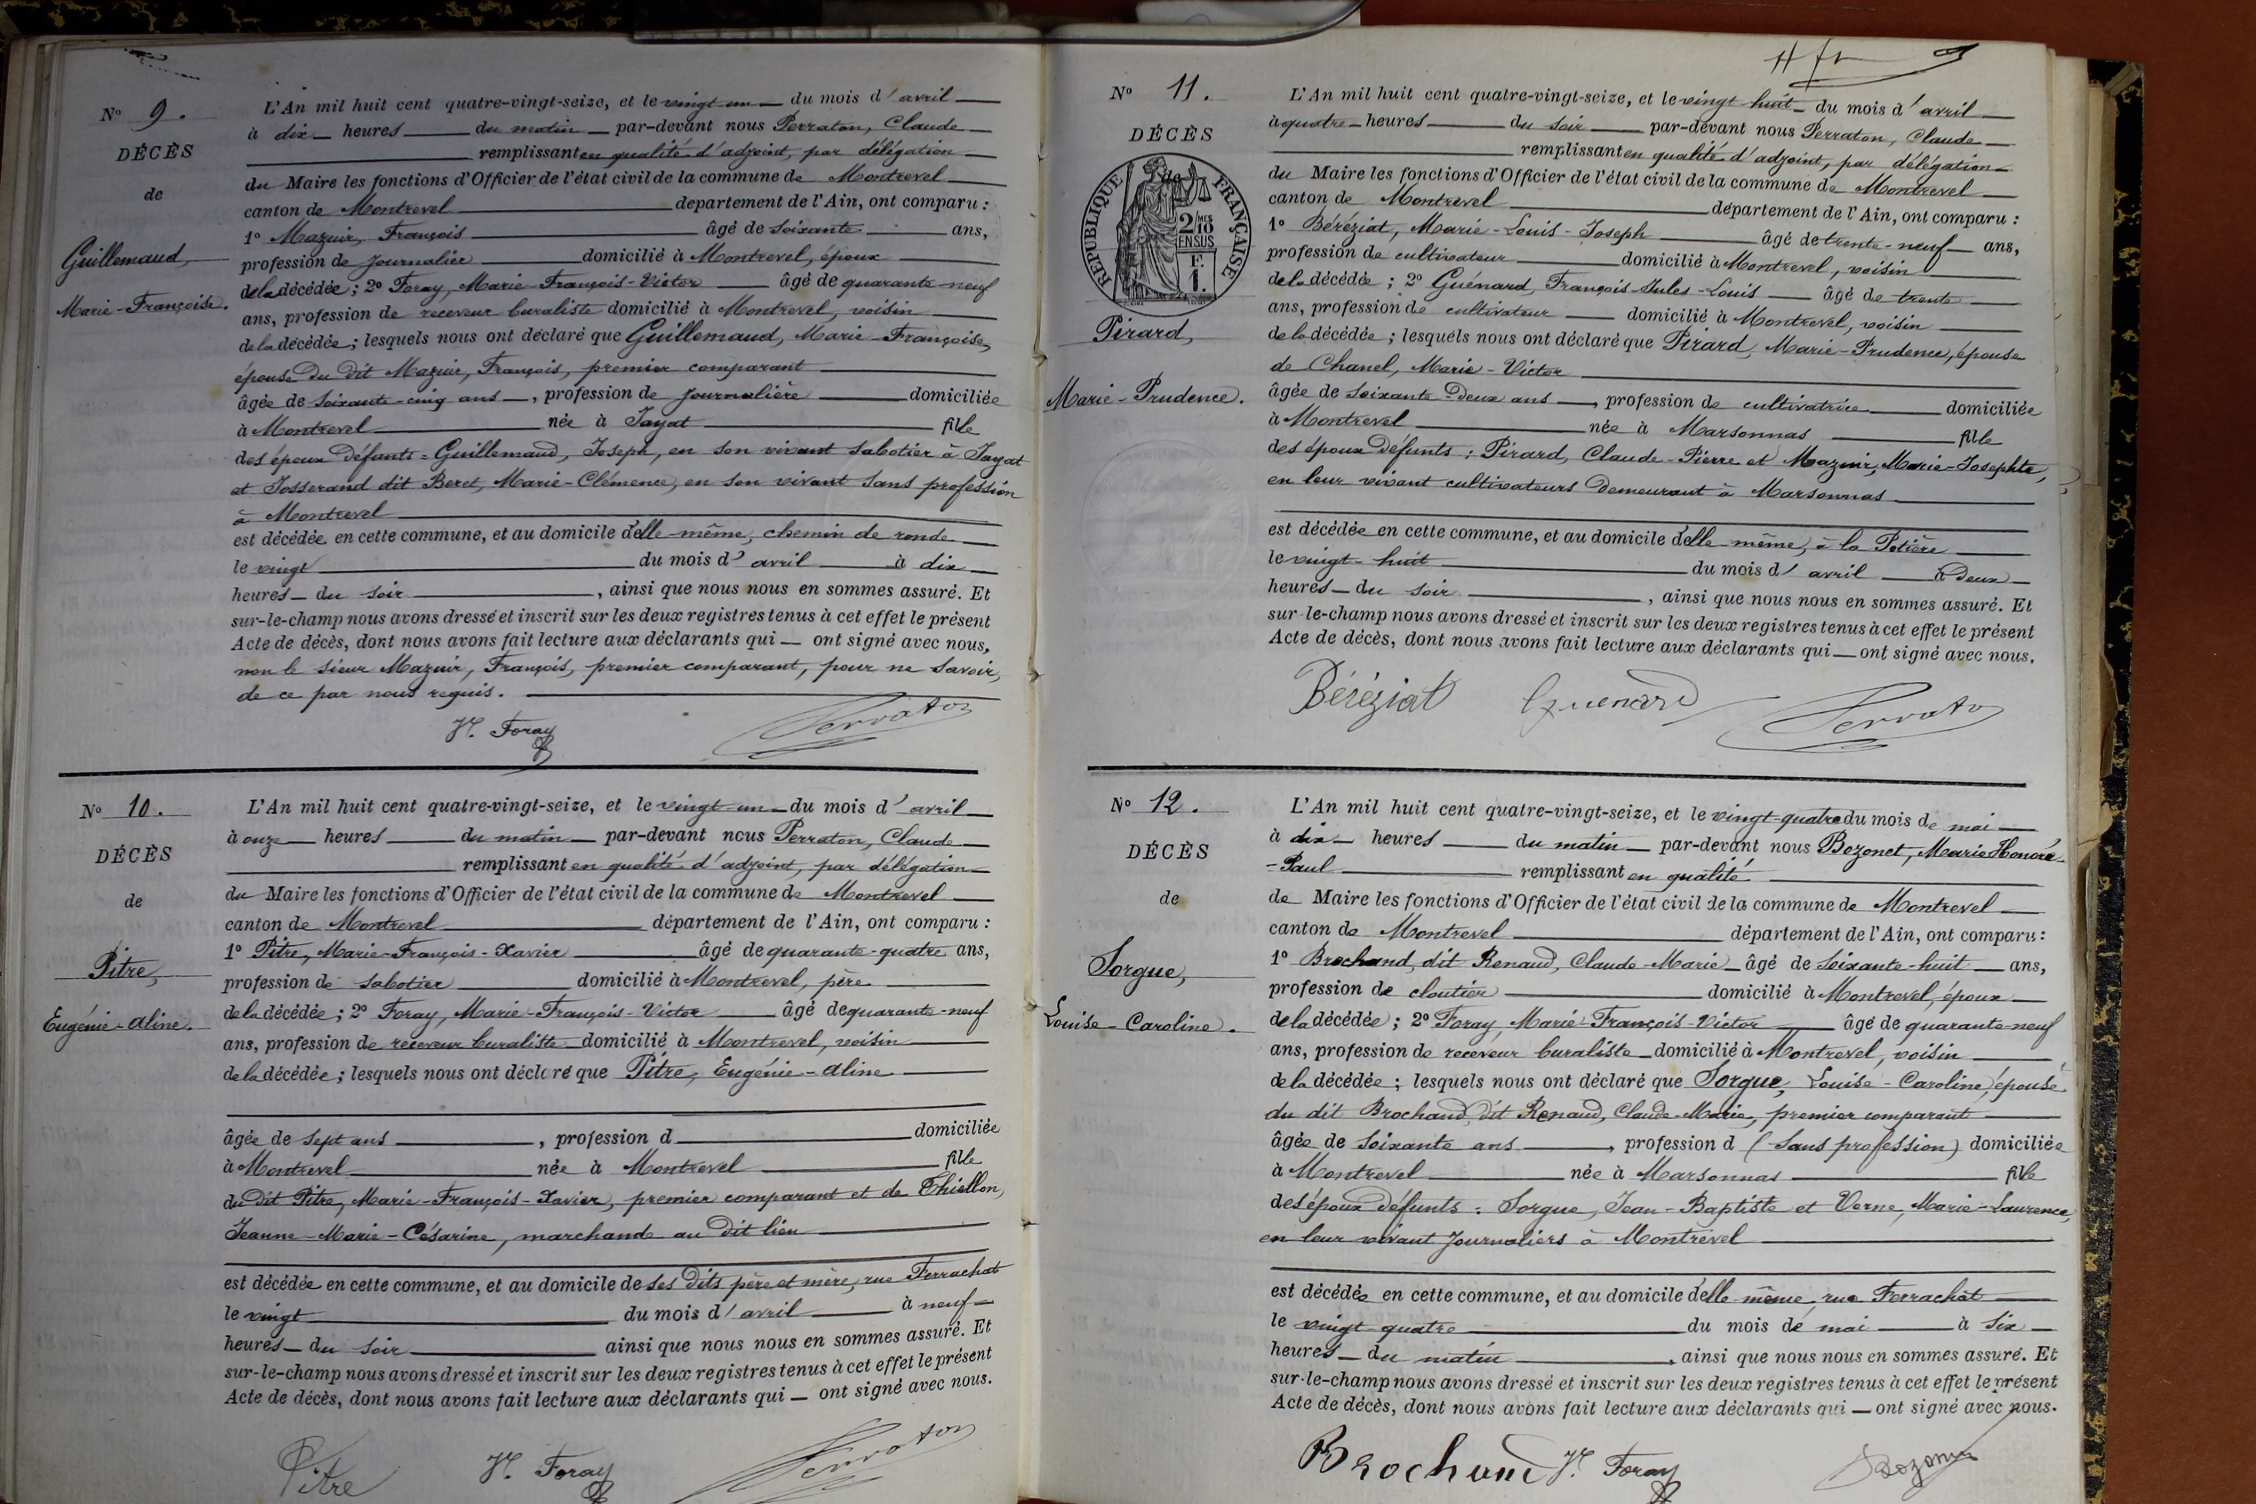 Nº 9.
DÉCÈS
de
Guillemaud,
Marie-Françoise.
L'An mil huit cent quatre-vingt-seize, et le vingt un du mois d'avril
à dix heures du matin par-devant nous Perraton, Claude
remplissant en qualité d'adjoint, par délégation
du Maire les fonctions d'Officier de l'état civil de la commune de Montrevel
canton de Montrevel département de l'Ain, ont comparu :
1º Mazuir, François âgé de soixante ans,
profession de journalier domicilié à Montrevel, époux
de la décédée ; 2º Foray, Marie-François-Victor âgé de quarante-neuf
ans, profession de receveur buraliste domicilié à Montrevel, voisin
de la décédée ; lesquels nous ont déclaré que Guillemaud, Marie-Françoise,
épouse du dit Mazuir, François, premier comparant
âgée de soixante-cinq ans, profession de journalière domiciliée
à Montrevel née à Jayat fille
des époux défunts = Guillemaud, Joseph, en son vivant sabotier à Jayat
et Josserand dit Beret, Marie-Clémence, en son vivant sans profession
à Montrevel
est décédée en cette commune, et au domicile d'elle-même, chemin de ronde
le vingt du mois d'avril à dix
heures du soir, ainsi que nous nous en sommes assuré. Et
sur-le-champ nous avons dressé et inscrit sur les deux registres tenus à cet effet le présent
Acte de décès, dont nous avons fait lecture aux déclarants qui — ont signé avec nous,
non le sieur Mazuir, François, premier comparant, pour ne savoir,
de ce par nous requis.
Vr. Foray Perraton
Nº 10.
DÉCÈS
de
Pitre,
Eugénie-Aline.
L'An mil huit cent quatre-vingt-seize, et le vingt un du mois d'avril
à onze heures du matin par-devant nous Perraton, Claude
remplissant en qualité d'adjoint, par délégation
du Maire les fonctions d'Officier de l'état civil de la commune de Montrevel
canton de Montrevel département de l'Ain, ont comparu :
1º Pitre, Marie-François-Xavier âgé de quarante-quatre ans,
profession de sabotier domicilié à Montrevel, père
de la décédée ; 2º Foray, Marie-François-Victor âgé de quarante-neuf
ans, profession de receveur buraliste domicilié à Montrevel, voisin
de la décédée ; lesquels nous ont déclaré que Pitre, Eugénie-Aline
âgée de sept ans, profession d domiciliée
à Montrevel née à Montrevel fille
du dit Pitre, Marie-François-Xavier, premier comparant et de Thiellon,
Jeanne-Marie-Césarine, marchande au dit lieu
est décédée en cette commune, et au domicile de ses dits père et mère, rue Ferrachat
le vingt du mois d'avril à neuf
heures du soir ainsi que nous nous en sommes assuré. Et
sur-le-champ nous avons dressé et inscrit sur les deux registres tenus à cet effet le présent
Acte de décès, dont nous avons fait lecture aux déclarants qui — ont signé avec nous.
Pitre Vr. Foray Perraton
Nº 11.
DÉCÈS
de
RÉPUBLIQUE FRANÇAISE
2/10 EN SUS
F. 1.
Pirard,
Marie-Prudence.
L'An mil huit cent quatre-vingt-seize, et le vingt huit du mois d'avril
à quatre heures du soir par-devant nous Perraton, Claude
remplissant en qualité d'adjoint, par délégation
du Maire les fonctions d'Officier de l'état civil de la commune de Montrevel
canton de Montrevel département de l'Ain, ont comparu :
1º Béréziat, Marie-Louis-Joseph âgé de trente-neuf ans,
profession de cultivateur domicilié à Montrevel, voisin
de la décédée ; 2º Guénard, François-Jules-Louis âgé de trente
ans, profession de cultivateur domicilié à Montrevel, voisin
de la décédée ; lesquels nous ont déclaré que Pirard, Marie-Prudence, épouse
de Chanel, Marie-Victor
âgée de soixante-deux ans, profession de cultivatrice domiciliée
à Montrevel née à Marsonnas fille
des époux défunts : Pirard, Claude-Pierre et Mazuir, Marie-Josephte,
en leur vivant cultivateurs demeurant à Marsonnas
est décédée en cette commune, et au domicile d'elle-même, à la Potière
le vingt-huit du mois d'avril à deux
heures du soir, ainsi que nous nous en sommes assuré. Et
sur-le-champ nous avons dressé et inscrit sur les deux registres tenus à cet effet le présent
Acte de décès, dont nous avons fait lecture aux déclarants qui — ont signé avec nous.
Béréziat Guenard Perraton
Nº 12.
DÉCÈS
de
Sorgue,
Louise-Caroline.
L'An mil huit cent quatre-vingt-seize, et le vingt-quatre du mois de mai
à dix heures du matin par-devant nous Bozonet, Marie Honoré-
-Paul remplissant en qualité
de Maire les fonctions d'Officier de l'état civil de la commune de Montrevel
canton de Montrevel département de l'Ain, ont comparu :
1º Brochand, dit Renaud, Claude-Marie âgé de soixante-huit ans,
profession de cloutier domicilié à Montrevel, époux
de la décédée ; 2º Foray, Marie-François-Victor âgé de quarante-neuf
ans, profession de receveur buraliste domicilié à Montrevel, voisin
de la décédée ; lesquels nous ont déclaré que Sorgue, Louise-Caroline, épouse
du dit Brochand dit Renaud, Claude-Marie, premier comparant
âgée de soixante ans, profession d (sans profession) domiciliée
à Montrevel née à Marsonnas fille
des époux défunts : Sorgue, Jean-Baptiste et Verne, Marie-Laurence,
en leur vivant journaliers à Montrevel
est décédée en cette commune, et au domicile d'elle-même, rue Ferrachat
le vingt-quatre du mois de mai à six
heures du matin, ainsi que nous nous en sommes assuré. Et
sur-le-champ nous avons dressé et inscrit sur les deux registres tenus à cet effet le présent
Acte de décès, dont nous avons fait lecture aux déclarants qui — ont signé avec nous.
Brochand Vr. Foray Bozonet